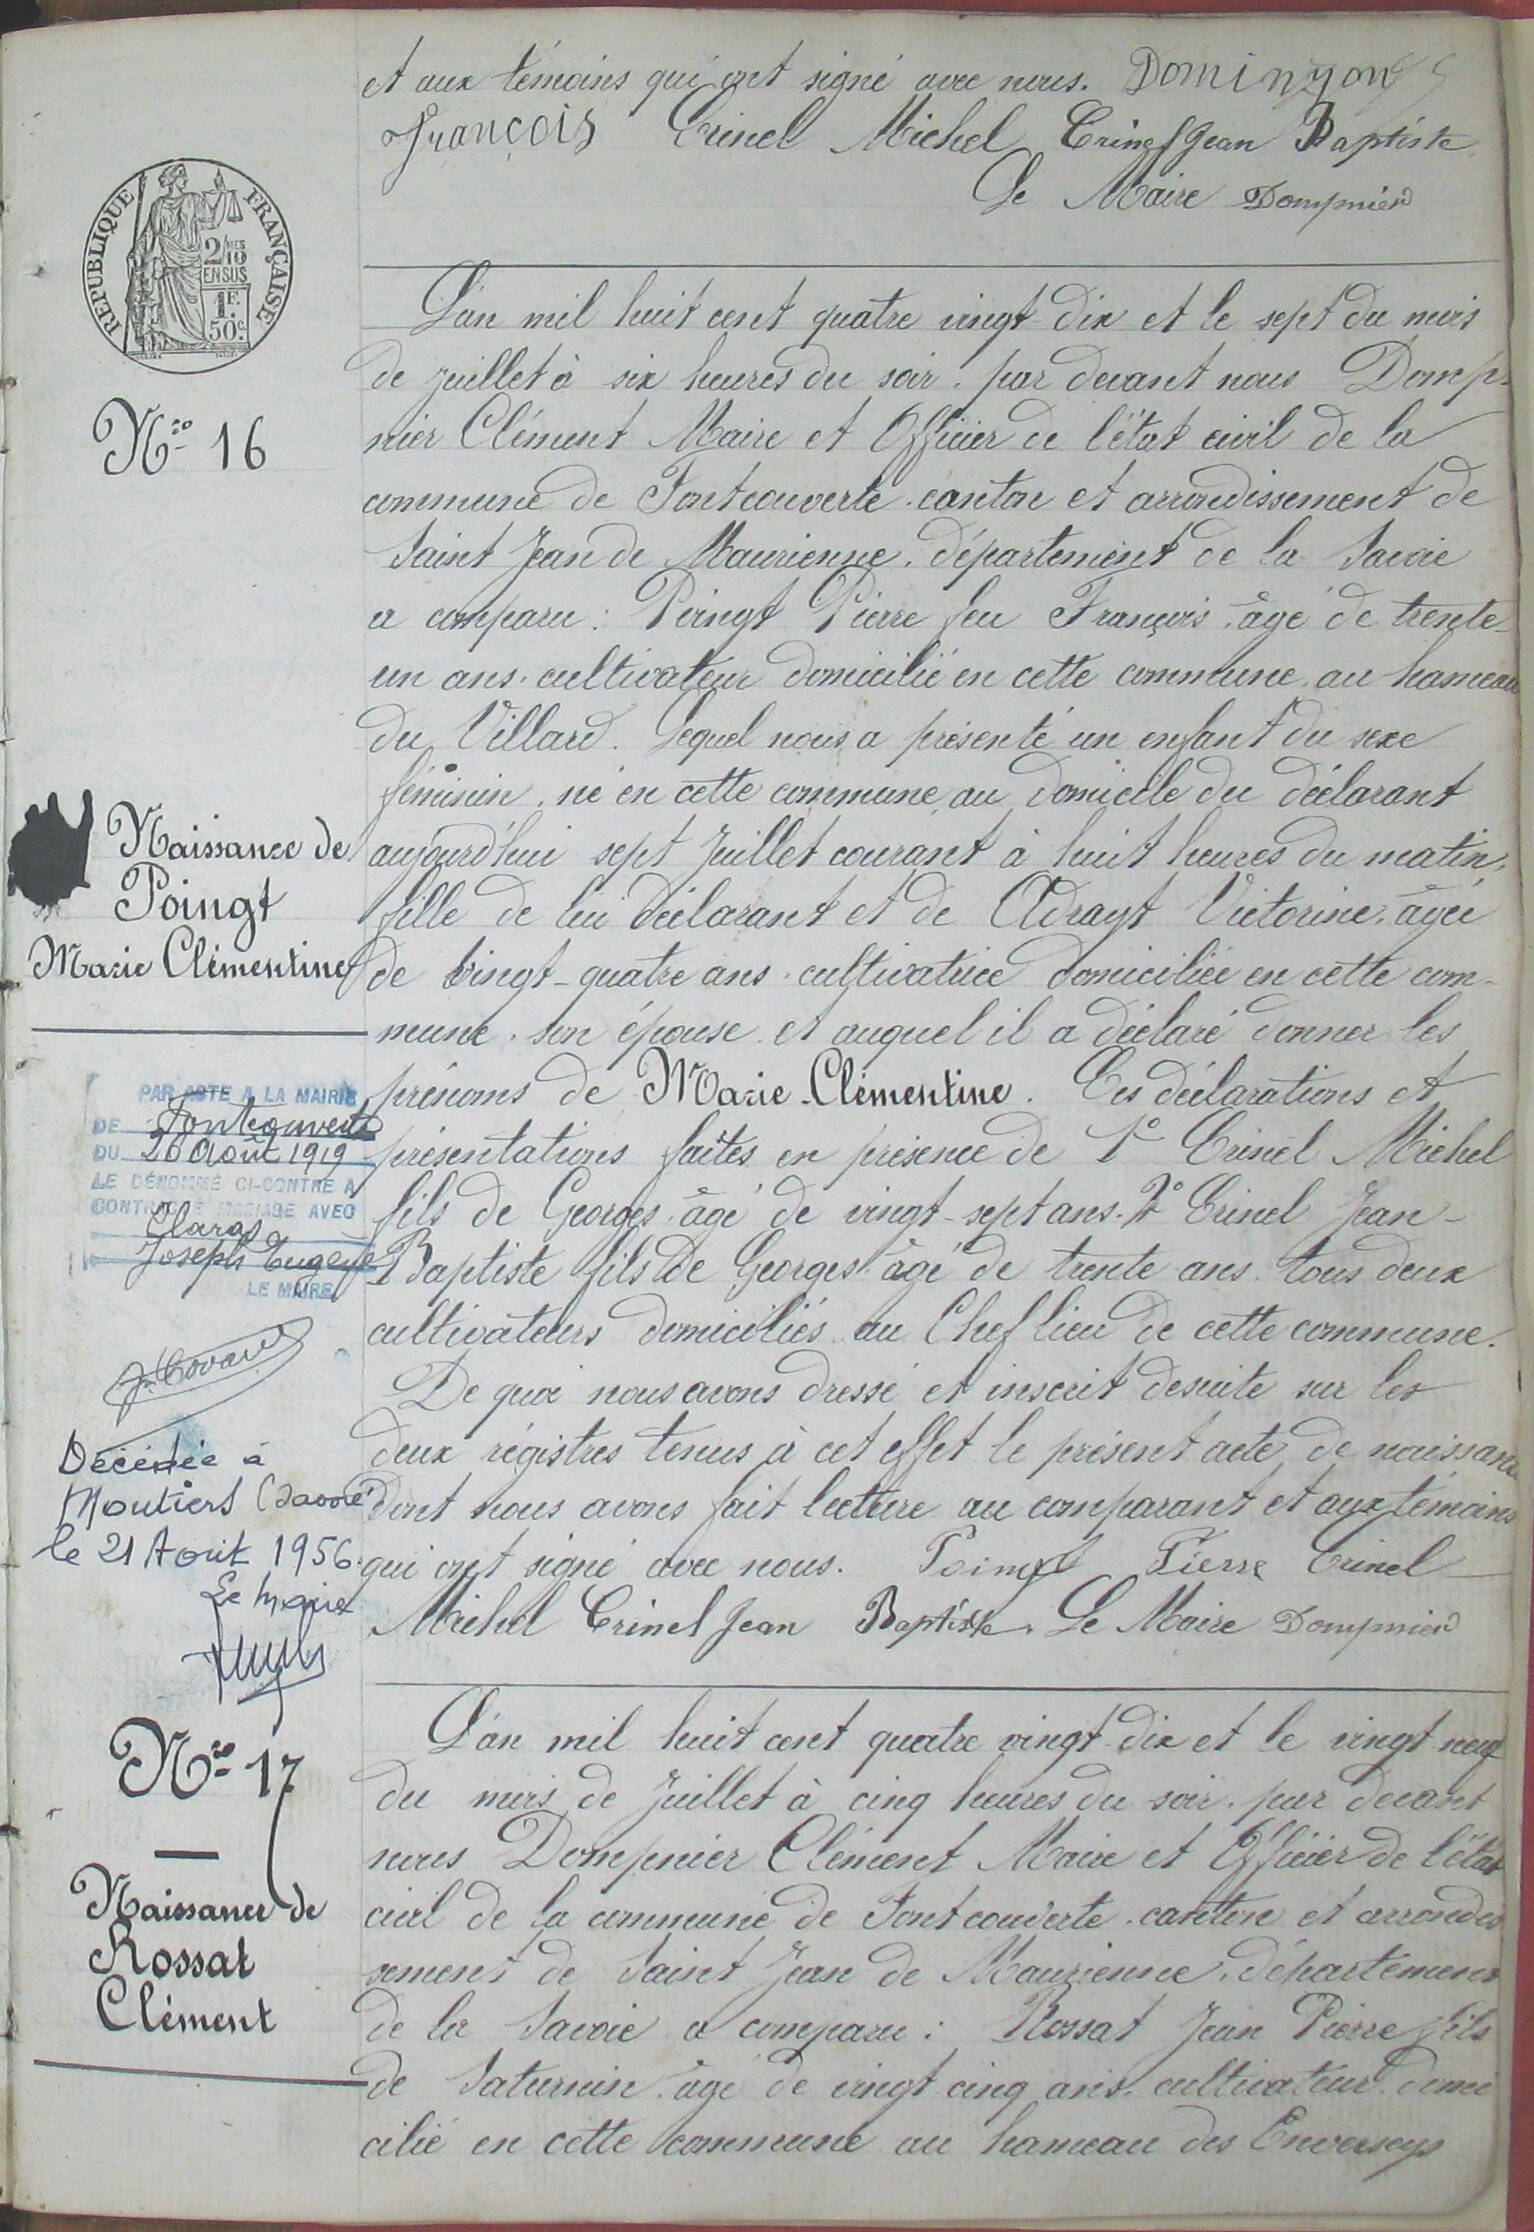 et aux témoins qui ont signé avec nous. Dominjon
François Crinel Michel Crinel Jean Baptiste
Le Maire Dompnier
REPUBLIQUE FRANÇAISE
2/10MES
EN SUS
1F.
50c.
Nro 16
L'an mil huit cent quatre vingt dix et le sept du mois
de juillet à six heures du soir. par devant nous Domp-
nier Clément Maire et Officier de l'état civil de la
commune de Fontcouverte. canton et arrondissement de
Saint Jean de Maurienne. département de la Savoie
a comparu : Poingt Pierre feu François. âgé de trente-
un ans. cultivateur domicilié en cette commune. au hameau
du Villard. Lequel nous a présenté un enfant du sexe
féminin. né en cette commune au domicile du déclarant
aujourd'hui sept Juillet courant à huit heures du matin,
fille de lui déclarant et de Adrayt Victorine. âgée
de vingt-quatre ans. cultivatrice domiciliée en cette com-
mune. son épouse et auquel il a déclaré donner les
prénoms de Marie-Clémentine. Ces déclarations et
présentations faites en présence de 1° Crinel Michel
fils de Georges âgé de vingt-sept ans. 2° Crinel Jean-
Baptiste fils de Georges âgé de trente ans. tous deux
cultivateurs domiciliés au Chef lieu de cette commune.
De quoi nous avons dressé et inscrit desuite sur les
deux régistres tenus à cet effet le présent acte de naissance
dont nous avons fait lecture au comparant et aux témoins
qui ont signé avec nous. Poingt Pierre Crinel
Michel Crinel Jean Baptiste. Le Maire Dompnier
Naissance de
Poingt
Marie Clémentine
PAR ACTE A LA MAIRIE
DE Fontcouverte
DU 20 Août 1919
LE DÉNOMMÉ CI-CONTRE A
CONTRACTÉ MARIAGE AVEC
Claras
Joseph Eugène
LE MAIRE
Décédée à
Moutiers (Savoie)
le 21 Août 1956.
Le Maire
Nro 17
Naissance de
Rossat
Clément
L'an mil huit cent quatre vingt-dix et le vingt neuf
du mois de Juillet à cinq heures du soir. par devant
nous Dompnier Clément Maire et Officier de l'état
civil de la commune de Fontcouverte. canton et arrondis
sement de Saint Jean de Maurienne. département
de la Savoie a comparu : Rossat Jean Pierre fils
de Saturnin âgé de vingt cinq ans. cultivateur domi
cilié en cette commune au hameau des Enverseys